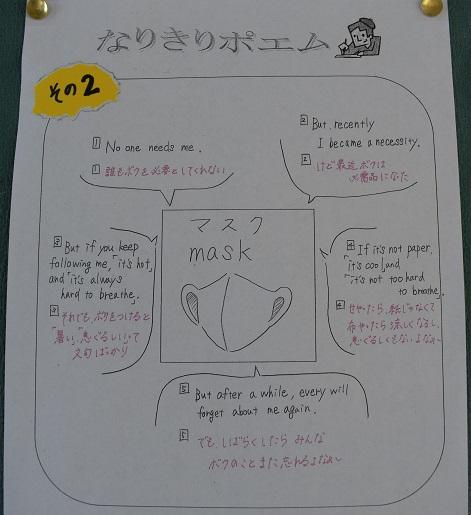 なりきりポエム
その2
1 No one needs me.
1 誰もボクを必要としてくれない
2 But, recently
I became a necessity.
2 けど最近ボクは
必需品になった
マスク
mask
3 But if you keep
following me,「it's hot」
and「it's always
hard to breathe」
3 それでも、ボクをつけると
「暑い」「息ぐるしい」って
文句ばっかり
4 If it's not paper,
「it's cool」and
「it's not too hard
to breathe」
4 せやったら、紙じゃなくて
布やったら涼しくなるし、
息ぐるしくもないよなぁ〜
5 But after a while, every will
forget about me again.
5 でも、しばらくしたら みんな
ボクのことまた忘れるよなぁ〜